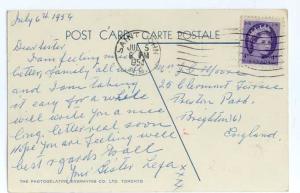 July 6th 1954
POST CARD CARTE POSTALE
SAINT JOHN
6 PM
1954
N.B.
Dear Sister
I am feeling
better, family all
and taking
it easy for a while
will write you a nice
long letter real soon
Hope you are feeling well
best regards to all
Your Sister
x x x
Moore
20 Clermont Terrace
Preston Park
Brighton (6)
England.
THE PHOTOGELATINE ENGRAVING CO. LTD. TORONTO